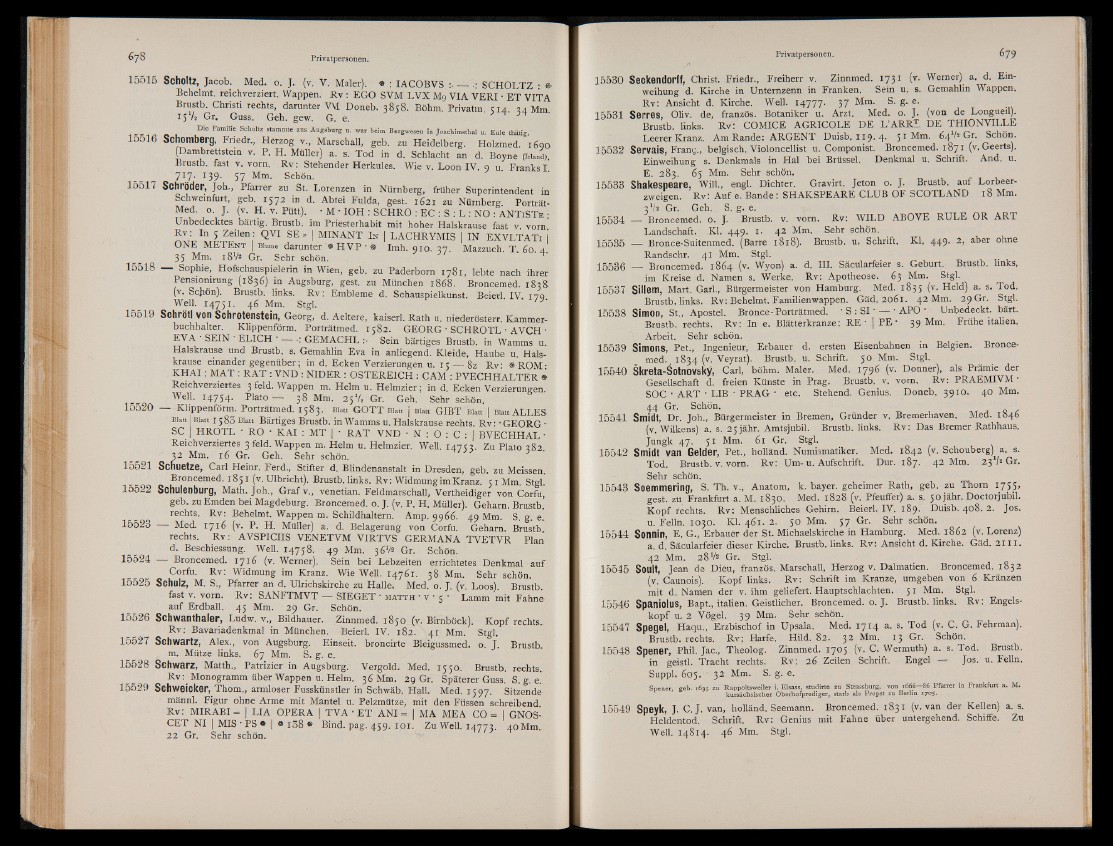 678 Privatpersonen.
15515 Scholtz, Jacob. Med. o. J. (v. V. Maler). ⊛ : IACOBVS :. — .: SCHOLTZ : ⊛
Behelmt. reichverziert. Wappen. Rv: EGO SVM LVX M9 VIA VERI · ET VITA
Brustb. Christi rechts, darunter VM Doneb. 3858. Böhm. Privatm. 514. 34 Mm.
15¹/₂ Gr. Guss. Geh. gew. G. e.
Die Familie Scholtz stammte aus Augsburg u. war beim Bergwesen in Joachimsthal u. Eule thätig.
15516 Schomberg, Friedr., Herzog v., Marschall, geb. zu Heidelberg. Holzmed. 1690
(Dambrettstein v. P. H. Müller) a. s. Tod in d. Schlacht an d. Boyne (Irland),
Brustb. fast v. vorn. Rv: Stehender Herkules. Wie v. Loon IV. 9 u. Franks I.
717. 139. 57 Mm. Schön.
15517 Schröder, Joh., Pfarrer zu St. Lorenzen in Nürnberg, früher Superintendent in
Schweinfurt, geb. 1572 in d. Abtei Fulda, gest. 1621 zu Nürnberg. Porträt-
Med. o. J. (v. H. v. Pütt). · M · IOH : SCHRÖ : EC : S : L : NO : ANTISTE :
Unbedecktes bärtig. Brustb. im Priesterhabit mit hoher Halskrause fast v. vorn.
Rv: In 5 Zeilen: QVI SE » | MINANT IN | LACHRYMIS | IN EXVLTATI |
ONE METENT | Blume darunter ⊛ HVP · ⊛ Imh. 910. 37. Mazzuch. T. 60. 4.
35 Mm. 18¹/₂ Gr. Sehr schön.
15518 — Sophie, Hofschauspielerin in Wien, geb. zu Paderborn 1781, lebte nach ihrer
Pensionirung (1836) in Augsburg, gest. zu München 1868. Broncemed. 1838
(v. Schön). Brustb. links. Rv: Embleme d. Schauspielkunst. Beierl. IV. 179.
Well. 14751. 46 Mm. Stgl.
15519 Schrötl von Schrotenstein, Georg, d. Aeltere, kaiserl. Rath u. niederösterr. Kammer-
buchhalter. Klippenförm. Porträtmed. 1582. GEORG · SCHROTL · AVCH ·
EVA · SEIN · ELICH · — .: GEMACHL :· Sein bärtiges Brustb. in Wamms u.
Halskrause und Brustb. s. Gemahlin Eva in anliegend. Kleide, Haube u. Hals-
krause einander gegenüber; in d. Ecken Verzierungen u. 15 — 82 Rv: ⊛ ROM :
KHAI : MAT : RAT : VND : NIDER : OSTEREICH : CAM : PVECHHALTER ⊛
Reichverziertes 3 feld. Wappen m. Helm u. Helmzier; in d. Ecken Verzierungen.
Well. 14754. Plato — 38 Mm. 25¹/₂ Gr. Geh. Sehr schön.
15520 — Klippenförm. Porträtmed. 1583. Blatt GOTT Blatt | Blatt GIBT Blatt | Blatt ALLES
Blatt | Blatt 1583 Blatt Bärtiges Brustb. in Wamms u. Halskrause rechts. Rv: · GEORG ·
SC | HROTL · RO · KAI : MT | · RAT VND · N : O : C : | BVECHHAL ·
Reichverziertes 3 feld. Wappen m. Helm u. Helmzier. Well. 14753. Zu Plato 382.
32 Mm. 16 Gr. Geh. Sehr schön.
15521 Schuetze, Carl Heinr. Ferd., Stifter d. Blindenanstalt in Dresden, geb. zu Meissen.
Broncemed. 1851 (v. Ulbricht). Brustb. links. Rv: Widmung im Kranz. 51 Mm. Stgl.
15522 Schulenburg, Math. Joh., Graf v., venetian. Feldmarschall, Vertheidiger von Corfu,
geb. zu Emden bei Magdeburg. Broncemed. o. J. (v. P. H. Müller). Geharn. Brustb.
rechts. Rv: Behelmt. Wappen m. Schildhaltern. Amp. 9966. 49 Mm. S. g. e.
15523 — Med. 1716 (v. P. H. Müller) a. d. Belagerung von Corfu. Geharn. Brustb.
rechts. Rv: AVSPICIIS VENETVM VIRTVS GERMANA TVETVR Plan
d. Beschiessung. Well. 14758. 49 Mm. 36¹/₂ Gr. Schön.
15524 — Broncemed. 1716 (v. Werner). Sein bei Lebzeiten errichtetes Denkmal auf
Corfu. Rv: Widmung im Kranz. Wie Well. 14761. 38 Mm. Sehr schön.
15525 Schulz, M. S., Pfarrer an d. Ulrichskirche zu Halle. Med. o. J. (v. Loos). Brustb.
fast v. vorn. Rv: SANFTMVT — SIEGET · MATTH · V · 5 · Lamm mit Fahne
auf Erdball. 45 Mm. 29 Gr. Schön.
15526 Schwanthaler, Ludw. v., Bildhauer. Zinnmed. 1850 (v. Birnböck). Kopf rechts.
Rv: Bavariadenkmal in München. Beierl. IV. 182. 41 Mm. Stgl.
15527 Schwartz, Alex., von Augsburg. Einseit. broncirte Bleigussmed. o. J. Brustb.
m. Mütze links. 67 Mm. S. g. e.
15528 Schwarz, Matth., Patrizier in Augsburg. Vergold. Med. 1550. Brustb. rechts.
Rv: Monogramm über Wappen u. Helm. 36 Mm. 29 Gr. Späterer Guss. S. g. e.
15529 Schweicker, Thom., armloser Fusskünstler in Schwäb. Hall. Med. 1597. Sitzende
männl. Figur ohne Arme mit Mantel u. Pelzmütze, mit den Füssen schreibend.
Rv: MIRABI = | LIA OPERA | TVA · ET ANI = | MA MEA CO = | GNOS-
CET NI | MIS · PS ⊛ | ⊛ 138 ⊛ Bind. pag. 459. 101. Zu Well. 14773. 40 Mm.
22 Gr. Sehr schön.
Privatpersonen. 679
15530 Seckendorff, Christ. Friedr., Freiherr v. Zinnmed. 1731 (v. Werner) a. d. Ein-
weihung d. Kirche in Unternzenn in Franken. Sein u. s. Gemahlin Wappen.
Rv: Ansicht d. Kirche. Well. 14777. 37 Mm. S. g. e.
15531 Serres, Oliv. de, französ. Botaniker u. Arzt. Med. o. J. (von de Longueil).
Brustb. links. Rv: COMICE AGRICOLE DE L'ARRT DE THIONVILLE
Leerer Kranz. Am Rande: ARGENT Duisb. 119. 4. 51 Mm. 64¹/₂ Gr. Schön.
15532 Servais, Franç., belgisch. Violoncellist u. Componist. Broncemed. 1871 (v. Geerts).
Einweihung s. Denkmals in Hal bei Brüssel. Denkmal u. Schrift. And. u.
E. 283. 65 Mm. Sehr schön.
15533 Shakespeare, Will., engl. Dichter. Gravirt. Jeton o. J. Brustb. auf Lorbeer-
zweigen. Rv: Auf e. Bande: SHAKSPEARE CLUB OF SCOTLAND 18 Mm.
3¹/₂ Gr. Geh. S. g. e.
15534 — Broncemed. o. J. Brustb. v. vorn. Rv: WILD ABOVE RULE OR ART
Landschaft. Kl. 449. 1. 42 Mm. Sehr schön.
15535 — Bronce-Suitenmed. (Barre 1818). Brustb. u. Schrift. Kl. 449. 2, aber ohne
Randschr. 41 Mm. Stgl.
15536 — Broncemed. 1864 (v. Wyon) a. d. III. Säcularfeier s. Geburt. Brustb. links,
im Kreise d. Namen s. Werke. Rv: Apotheose. 63 Mm. Stgl.
15537 Sillem, Mart. Garl., Bürgermeister von Hamburg. Med. 1835 (v. Held) a. s. Tod.
Brustb. links. Rv: Behelmt. Familienwappen. Gäd. 2061. 42 Mm. 29 Gr. Stgl.
15538 Simon, St., Apostel. Bronce-Porträtmed. · S : SI · — · APO · Unbedeckt. bärt.
Brustb. rechts. Rv: In e. Blätterkranze: RE · | PE · 39 Mm. Frühe italien.
Arbeit. Sehr schön.
15539 Simons, Pet., Ingenieur, Erbauer d. ersten Eisenbahnen in Belgien. Bronce-
med. 1834 (v. Veyrat). Brustb. u. Schrift. 50 Mm. Stgl.
15540 Škreta-Šotnovský, Carl, böhm. Maler. Med. 1796 (v. Donner), als Prämie der
Gesellschaft d. freien Künste in Prag. Brustb. v. vorn. Rv: PRAEMIVM ·
SOC · ART · LIB · PRAG · etc. Stehend. Genius. Doneb. 3910. 40 Mm.
44 Gr. Schön.
15541 Smidt, Dr. Joh., Bürgermeister in Bremen, Gründer v. Bremerhaven. Med. 1846
(v. Wilkens) a. s. 25jähr. Amtsjubil. Brustb. links. Rv: Das Bremer Rathhaus.
Jungk 47. 51 Mm. 61 Gr. Stgl.
15542 Smidt van Gelder, Pet., holländ. Numismatiker. Med. 1842 (v. Schouberg) a. s.
Tod. Brustb. v. vorn. Rv: Um- u. Aufschrift. Dur. 187. 42 Mm. 23¹/₂ Gr.
Sehr schön.
15543 Soemmering, S. Th. v., Anatom, k. bayer. geheimer Rath, geb. zu Thorn 1755,
gest. zu Frankfurt a. M. 1830. Med. 1828 (v. Pfeuffer) a. s. 50jähr. Doctorjubil.
Kopf rechts. Rv: Menschliches Gehirn. Beierl. IV. 189. Duisb. 408. 2. Jos.
u. Felln. 1030. Kl. 461. 2. 50 Mm. 57 Gr. Sehr schön.
15544 Sonnin, E. G., Erbauer der St. Michaelskirche in Hamburg. Med. 1862 (v. Lorenz)
a. d. Säcularfeier dieser Kirche. Brustb. links. Rv: Ansicht d. Kirche. Gäd. 2111.
42 Mm. 28¹/₂ Gr. Stgl.
15545 Soult, Jean de Dieu, französ. Marschall, Herzog v. Dalmatien. Broncemed. 1832
(v. Caunois). Kopf links. Rv: Schrift im Kranze, umgeben von 6 Kränzen
mit d. Namen der v. ihm geliefert. Hauptschlachten. 51 Mm. Stgl.
15546 Spaniolus, Bapt., italien. Geistlicher. Broncemed. o. J. Brustb. links. Rv: Engels-
kopf u. 2 Vögel. 39 Mm. Sehr schön.
15547 Spegel, Haqu., Erzbischof in Upsala. Med. 1714 a. s. Tod (v. C. G. Fehrman).
Brustb. rechts. Rv: Harfe. Hild. 82. 32 Mm. 13 Gr. Schön.
15548 Spener, Phil. Jac., Theolog. Zinnmed. 1705 (v. C. Wermuth) a. s. Tod. Brustb.
in geistl. Tracht rechts. Rv: 26 Zeilen Schrift. Engel — Jos. u. Felln.
Suppl. 605. 32 Mm. S. g. e.
Spener, geb. 1635 zu Rappoltsweiler i. Elsass, studirte zu Strassburg, von 1666—86 Pfarrer in Frankfurt a. M.
kursächsischer Oberhofprediger, starb als Propst zu Berlin 1705.
15549 Speyk, J. C. J. van, holländ. Seemann. Broncemed. 1831 (v. van der Kellen) a. s.
Heldentod. Schrift. Rv: Genius mit Fahne über untergehend. Schiffe. Zu
Well. 14814. 46 Mm. Stgl.